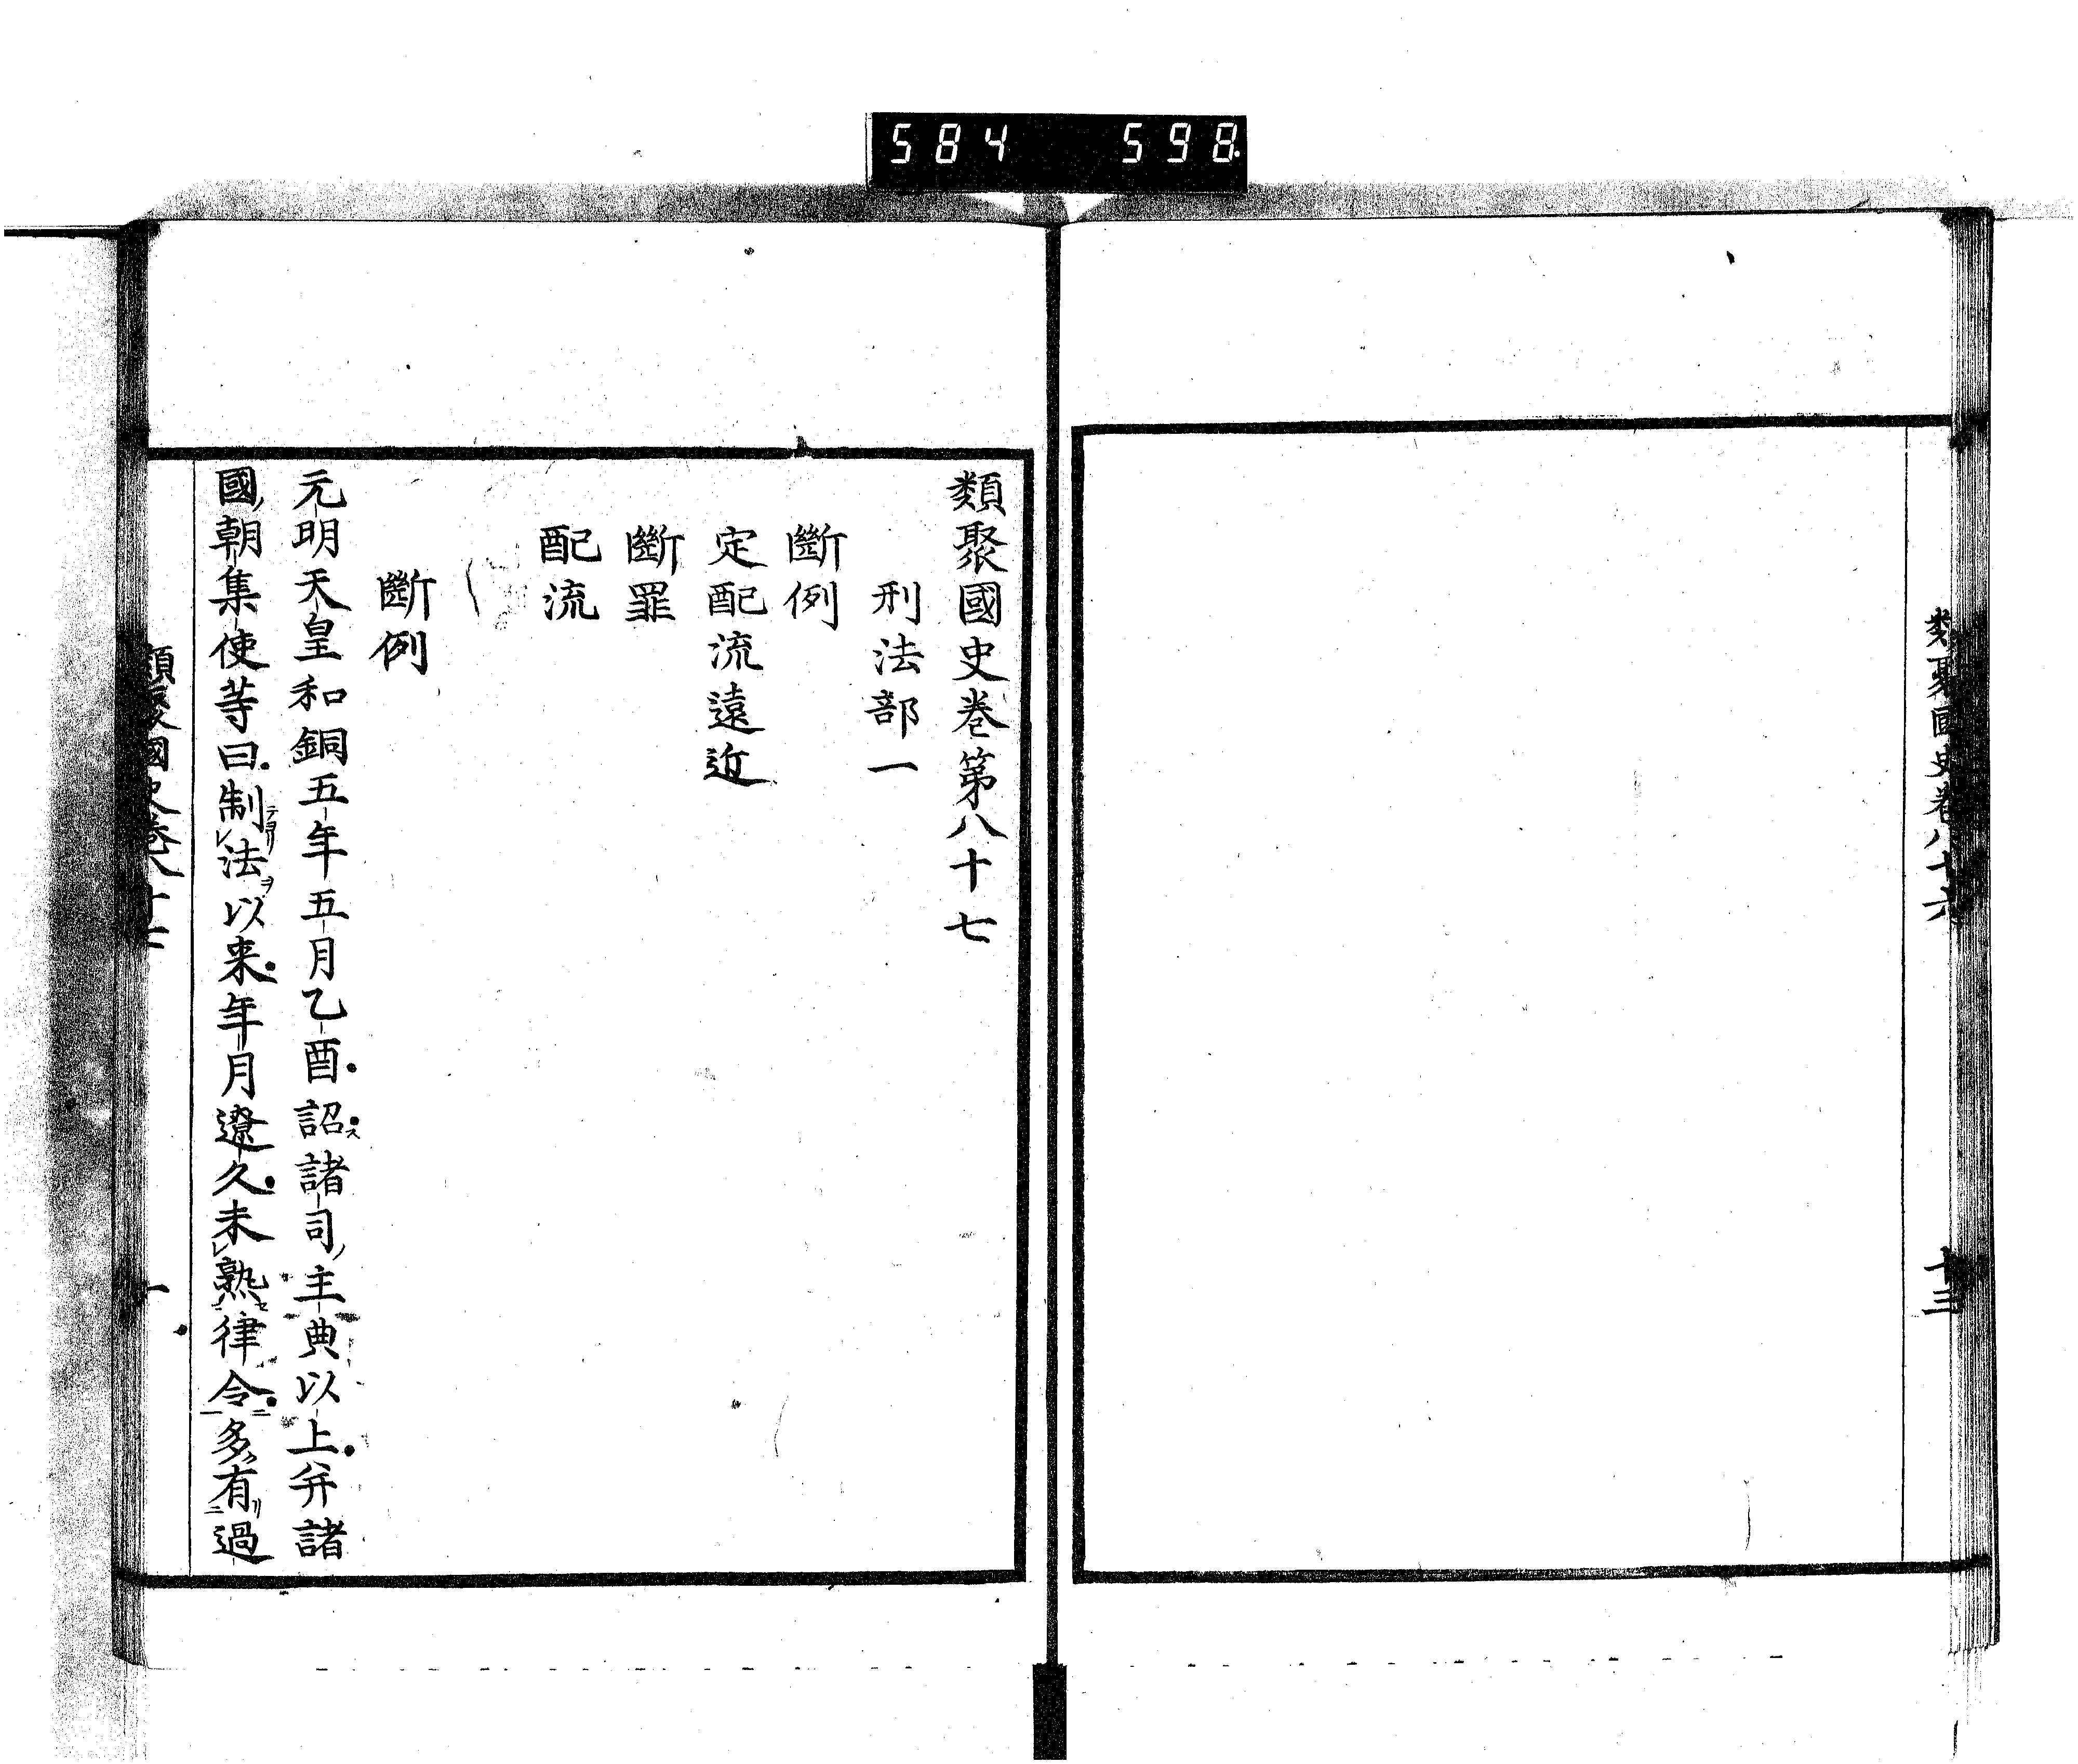 584 598
類聚國史卷八十六
十三
類聚國史卷第八十七
刑法部一
斷例
定配流遠近
斷罪
配流
斷例
元明天皇和銅五年五月乙酉詔諸司主典以上并諸
國朝集使等曰制法以来年月遼久未熟律令多有過
類聚國史卷八十七
一